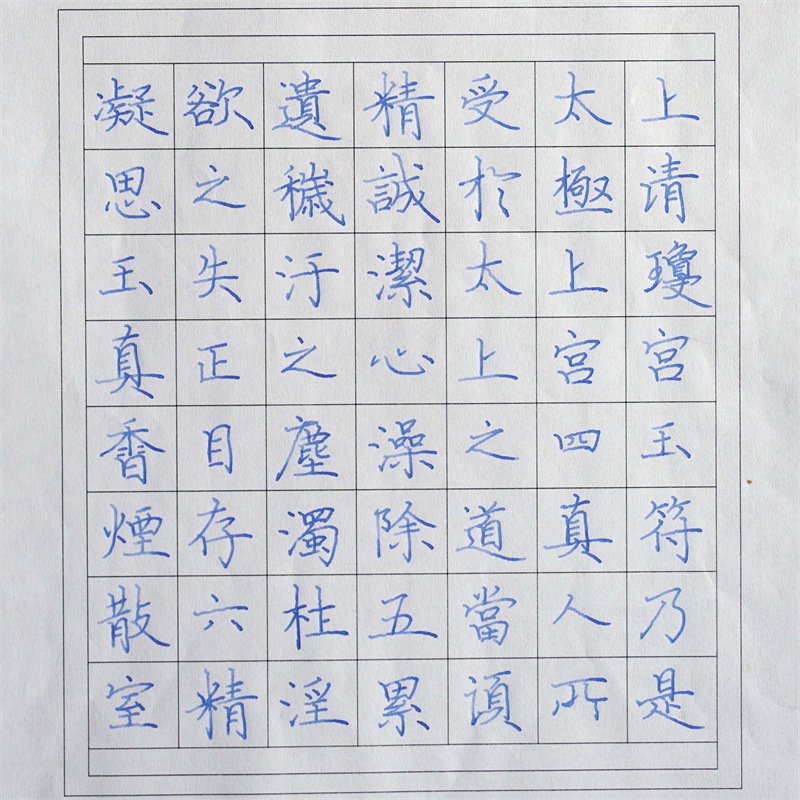 上清瓊宮玉符乃是
太極上宮四真人所
受於太上之道當須
精誠潔心澡除五累
遺穢汙之塵濁杜淫
欲之失正目存六精
凝思玉真香煙散室